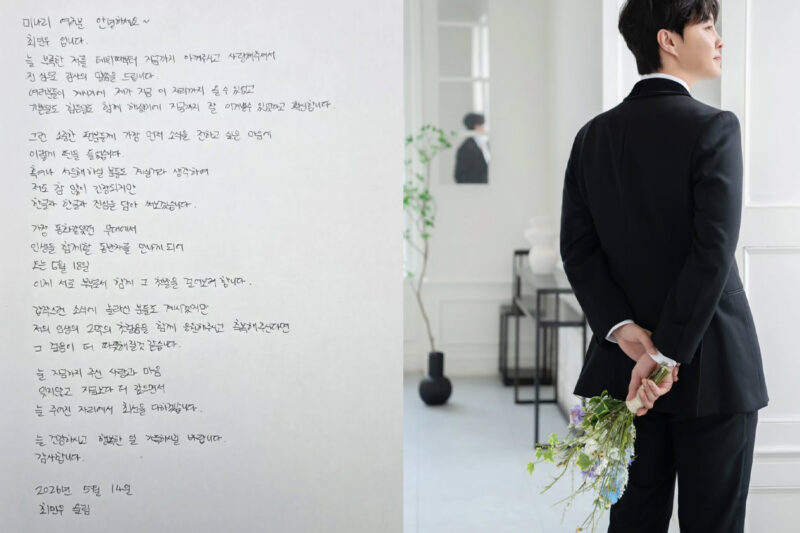 미나리 여러분 안녕하세요~
최민우 입니다.
늘 부족한 저를 데뷔때부터 지금까지 아껴주시고 사랑해주셔서
진심으로 감사의 말씀을 드립니다.
여러분들이 계시기에 제가 지금 이 자리까지 올 수 있었고
기쁨도 힘듦도 함께 하였기에 지금까지 잘 이겨낼수 있었다고 확신합니다.
그런 소중한 팬분들께 가장 먼저 소식을 전하고 싶은 마음에
이렇게 펜을 들었습니다.
혹여나 서운해하실 분들도 계실거라 생각하여
저도 참 많이 긴장되지만
한글자 한글자 진심을 담아 써보겠습니다.
가장 동화같았던 무대에서
인생을 함께할 동반자를 만나게 되어
오는 5월 18일
이제 서로 부부로서 함께 그 첫발을 걸어보려 합니다.
갑작스런 소식에 놀라신 분들도 계시겠지만
저의 인생의 2막의 첫걸음을 함께 응원해주시고 축복해주신다면
그 걸음이 더 따뜻해질것 같습니다.
늘 지금까지 주신 사랑과 마음
잊지않고 지금보다 더 깊으면서
늘 주어진 자리에서 최선을 다하겠습니다.
늘 건강하시고 행복한 일 가득하시길 바랍니다.
감사합니다.
2026년 5월 14일
최민우 올림